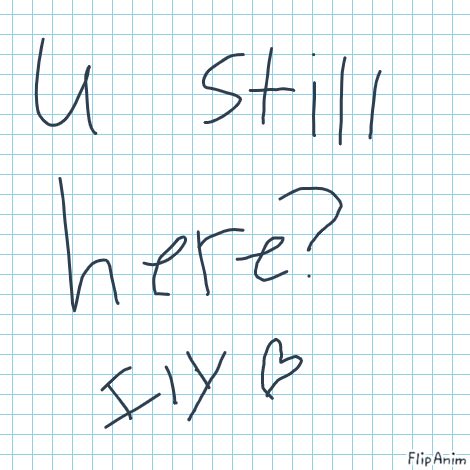 u still
here?
Ily ♡
FlipAnim